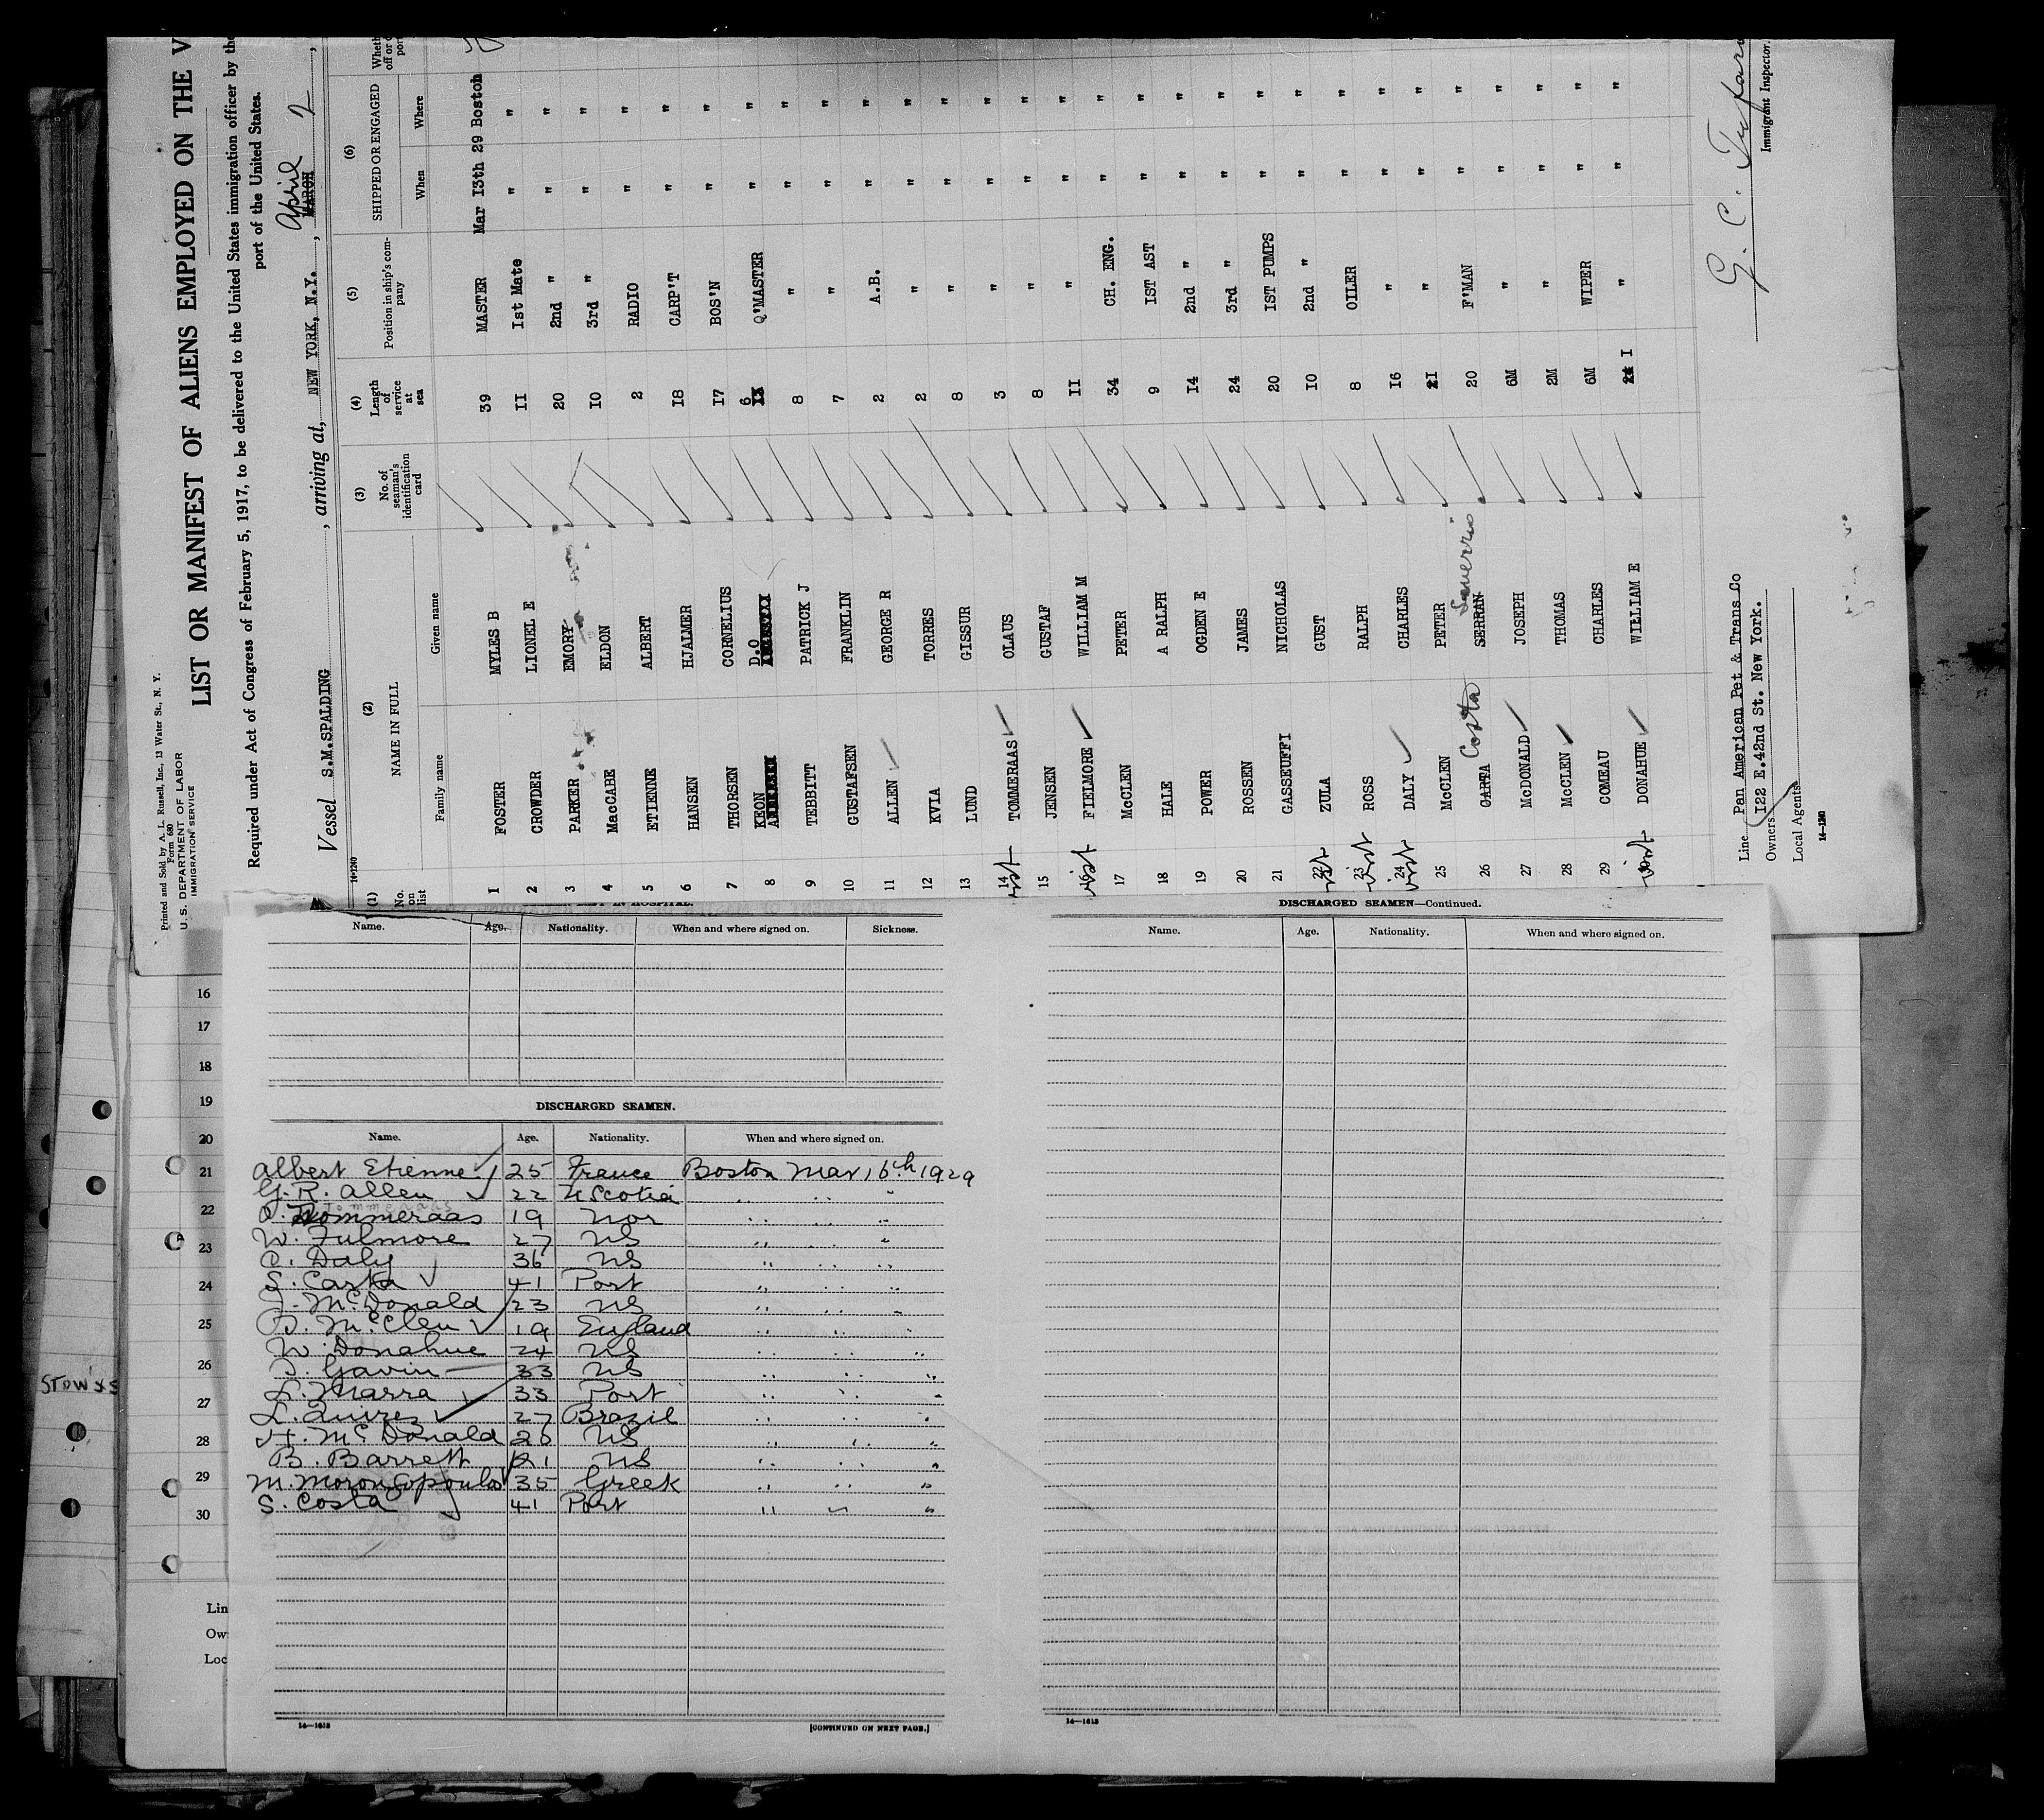 Printed and Sold by A. L. Russell, Inc., 13 Water St., N. Y.
Form 680
U. S. DEPARTMENT OF LABOR
IMMIGRATION SERVICE
LIST OR MANIFEST OF ALIENS EMPLOYED ON THE V
Required under Act of Congress of February 5, 1917, to be delivered to the United States immigration officer by the
port of the United States.
Vessel S.M.SPALDING, arriving at, NEW YORK, N.Y., MARCH April 2,
14-1240
(1) (2) (3) (4) (5) (6)
No. on list NAME IN FULL No. of seaman's identification card Length of service at sea Position in ship's company SHIPPED OR ENGAGED Wheth
off or d
port
Family name Given name When Where
1 FOSTER MYLES B 39 MASTER Mar 13th 29 Boston
2 CROWDER LIONEL E 11 1st Mate " "
3 PARKER EMORY 20 2nd " " "
4 MacCABE ELDON 10 3rd " " "
5 ETIENNE ALBERT 2 RADIO " "
6 HANSEN HJALMER 18 CARP'T " "
7 THORSEN CORNELIUS 17 BOS'N " "
8 KEON D.O 6 Q'MASTER " "
9 TEBBITT PATRICK J 8 " " "
10 GUSTAFSEN FRANKLIN 7 " " "
11 ALLEN GEORGE R 2 A.B. " "
12 KVIA TORRES 2 " " "
13 LUND GISSUR 8 " " "
14 TOMMERAAS OLAUS 3 " " "
15 JENSEN GUSTAF 8 " " "
16 FIELMORE WILLIAM M 11 " " "
17 McCLEN PETER 34 CH. ENG. " "
18 HALE A RALPH 9 1ST AST " "
19 POWER OGDEN E 14 2nd " " "
20 ROSSEN JAMES 24 3rd " " "
21 GASSEUFFI NICHOLAS 20 1ST PUMPS " "
22 ZULA GUST 10 2nd " " "
23 ROSS RALPH 8 OILER " "
24 DALY CHARLES 16 " " "
25 McCLEN PETER 21 " " "
26 CARTA Costa SERRAN Saverrio 20 F'MAN " "
27 McDONALD JOSEPH 6M " " "
28 McCLEN THOMAS 2M " " "
29 COMEAU CHARLES 6M WIPER " "
DONAHUE WILLIAM E 1 " " "
Line Pan American Pet & Trans Co
Owners 122 E.42nd St. New York.
Local Agents
14-1240
G. C.
Immigrant Inspector.
LIST IN HOSPITAL.
Name. Age. Nationality. When and where signed on. Sickness.
DISCHARGED SEAMEN.
Name. Age. Nationality. When and where signed on.
Albert Etienne 25 France Boston Mar 16th 1929
G. R. Allen 22 N Scotia " " "
O. Tommeraas 19 Nor " " "
W. Fulmore 27 NS " " "
C. Daly 36 NS " " "
S. Carta 41 Port " " "
J. McDonald 23 NS " " "
T. McClen 19 England " " "
W. Donahue 24 NS " " "
Gavin 33 NS " " "
L. Marra 33 Port " " "
L. Quires 27 Brazil " " "
H. McDonald 26 NS " " "
B. Barrett 21 NS " " "
M. 35 Greek " " "
S. Costa 41 Port " " "
14—1613
[CONTINUED ON NEXT PAGE.]
DISCHARGED SEAMEN—Continued.
Name. Age. Nationality. When and where signed on.
14—1613
16
17
18
19
20
21
22
23
24
25
26
27
28
29
30
Lin
Ow
Loc
STOW'S